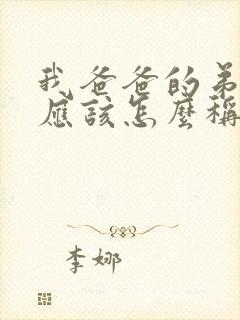 我爸爸的弟
應該怎麼稱
李娜